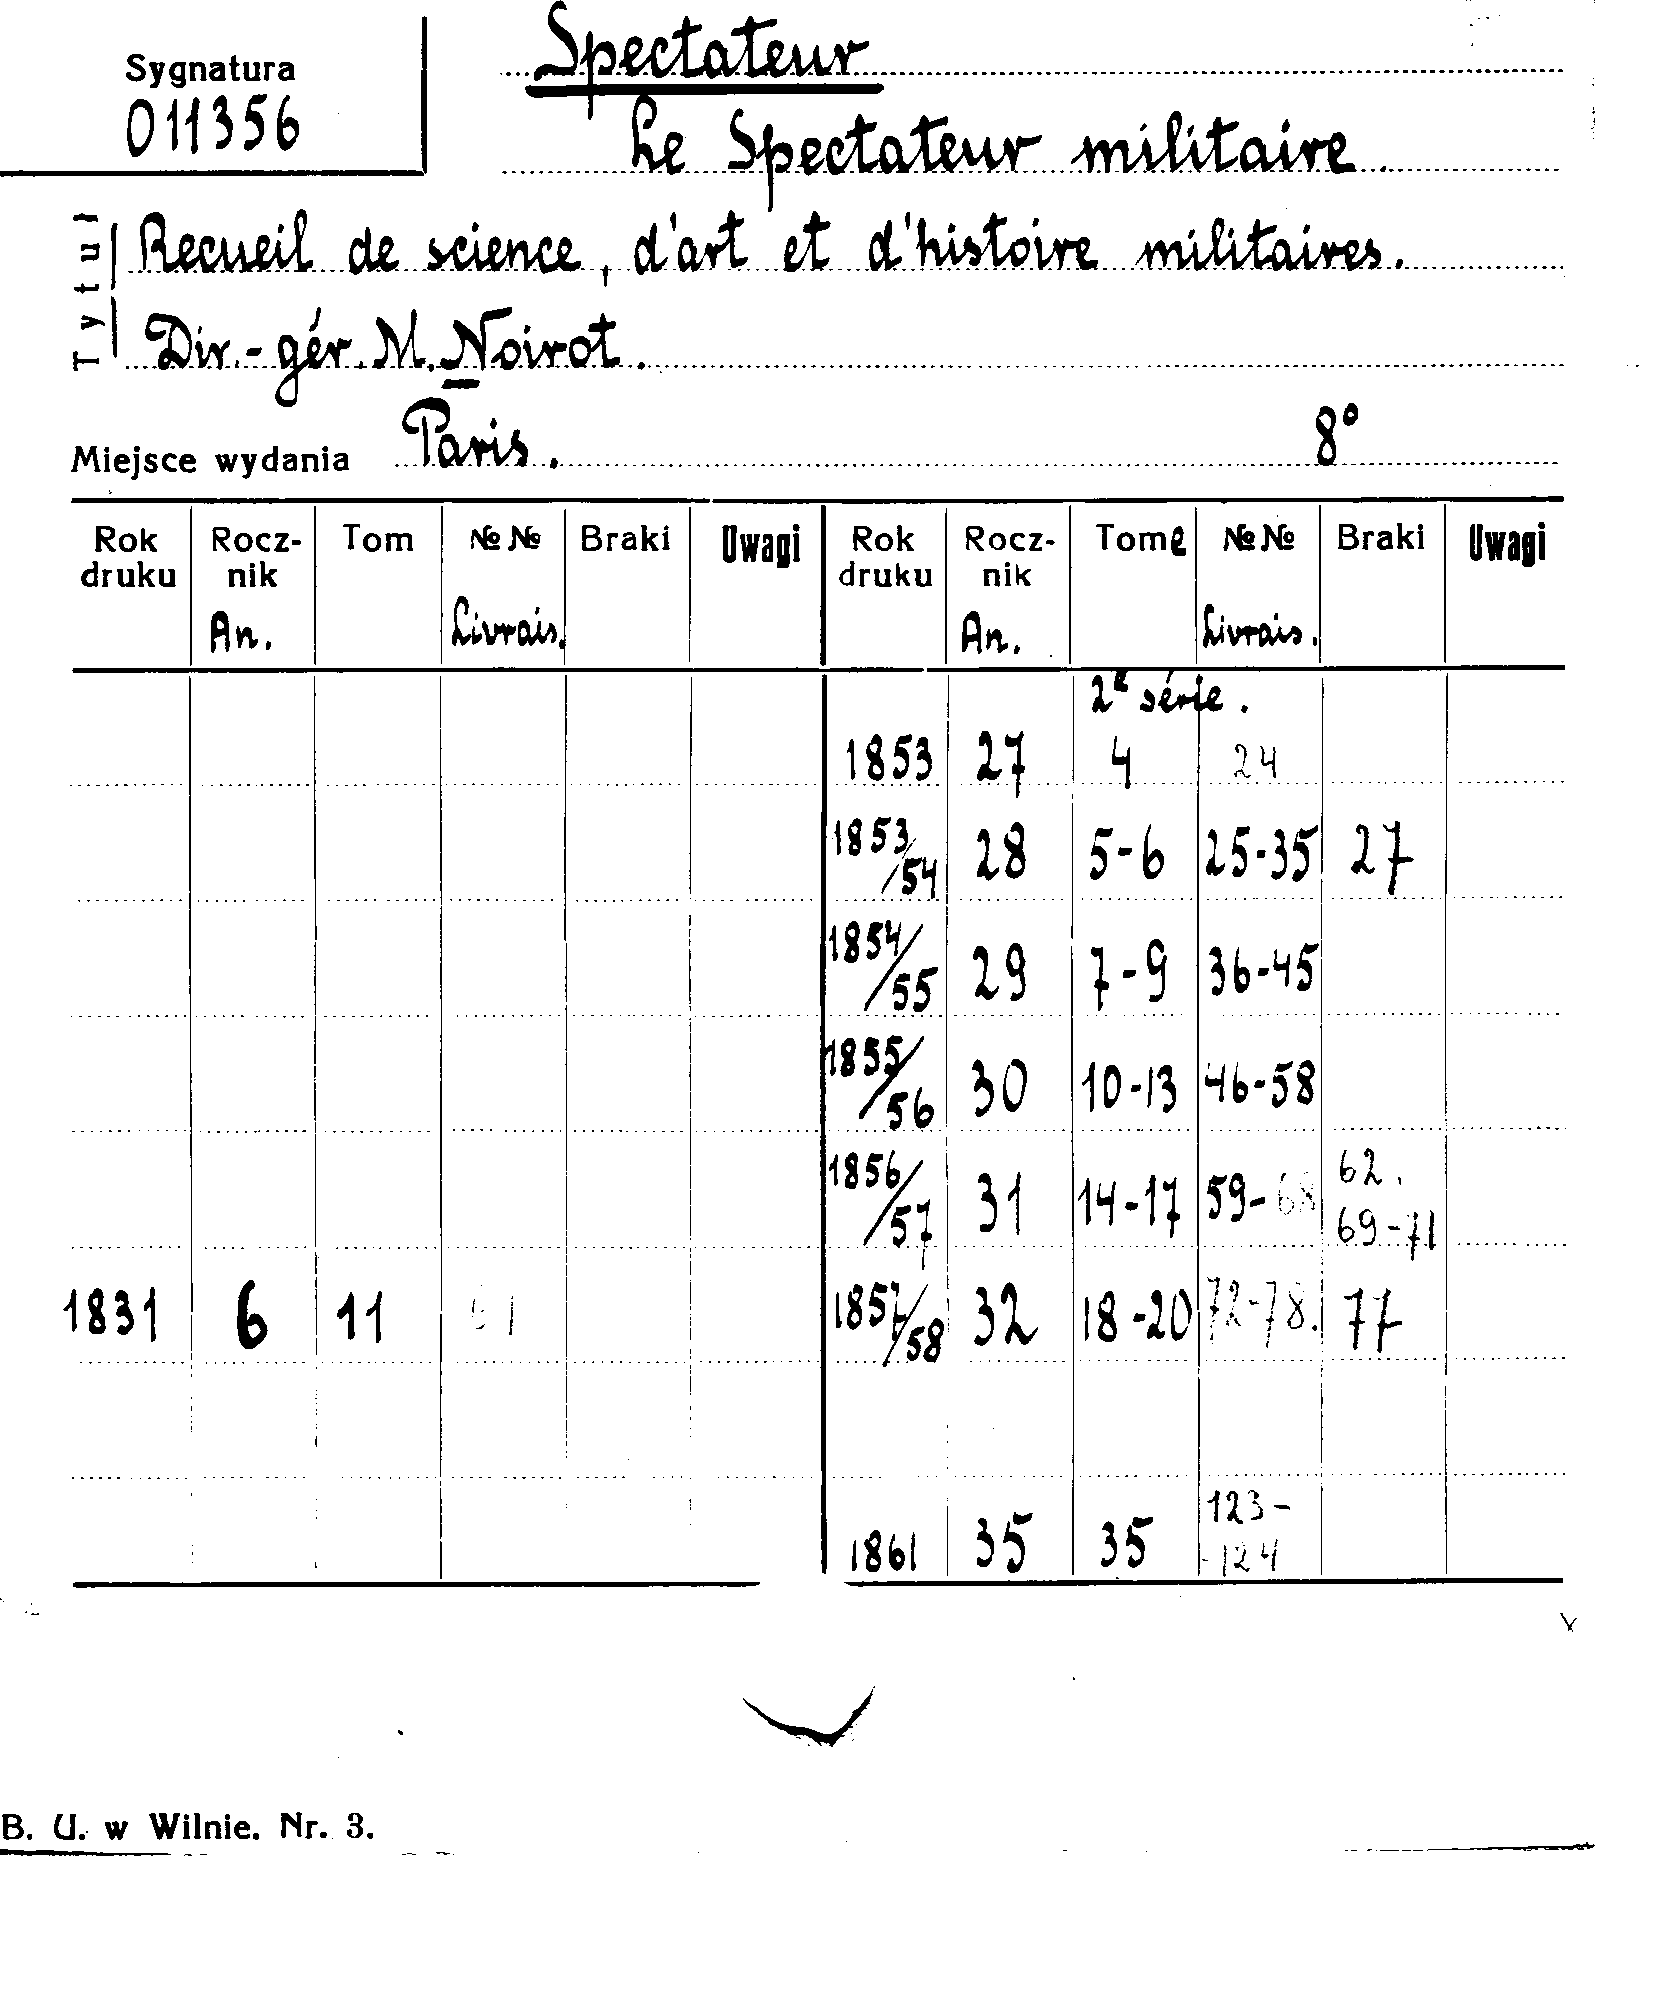 Sygnatura
011356
Spectateur
Le Spectateur militaire.
Tytuł
Recueil de science, d'art et d'histoire militaires.
Dir.-gér. M. Noirot.
Miejsce wydania Paris. 8°
Rok druku Rocz-nik An. Tom №№ Livrais. Braki Uwagi Rok druku Rocz-nik An. Tome №№ Livrais. Braki Uwagi
2e série.
1853 27 4 24
1853/54 28 5-6 25-35 27
1854/55 29 7-9 36-45
1855/56 30 10-13 46-58
1856/57 31 14-17 59-68 62. 69-71
1831 6 11 1857/58 32 18-20 72-78. 77
1861 35 35 123-
-124
B. U. w Wilnie. Nr. 3.